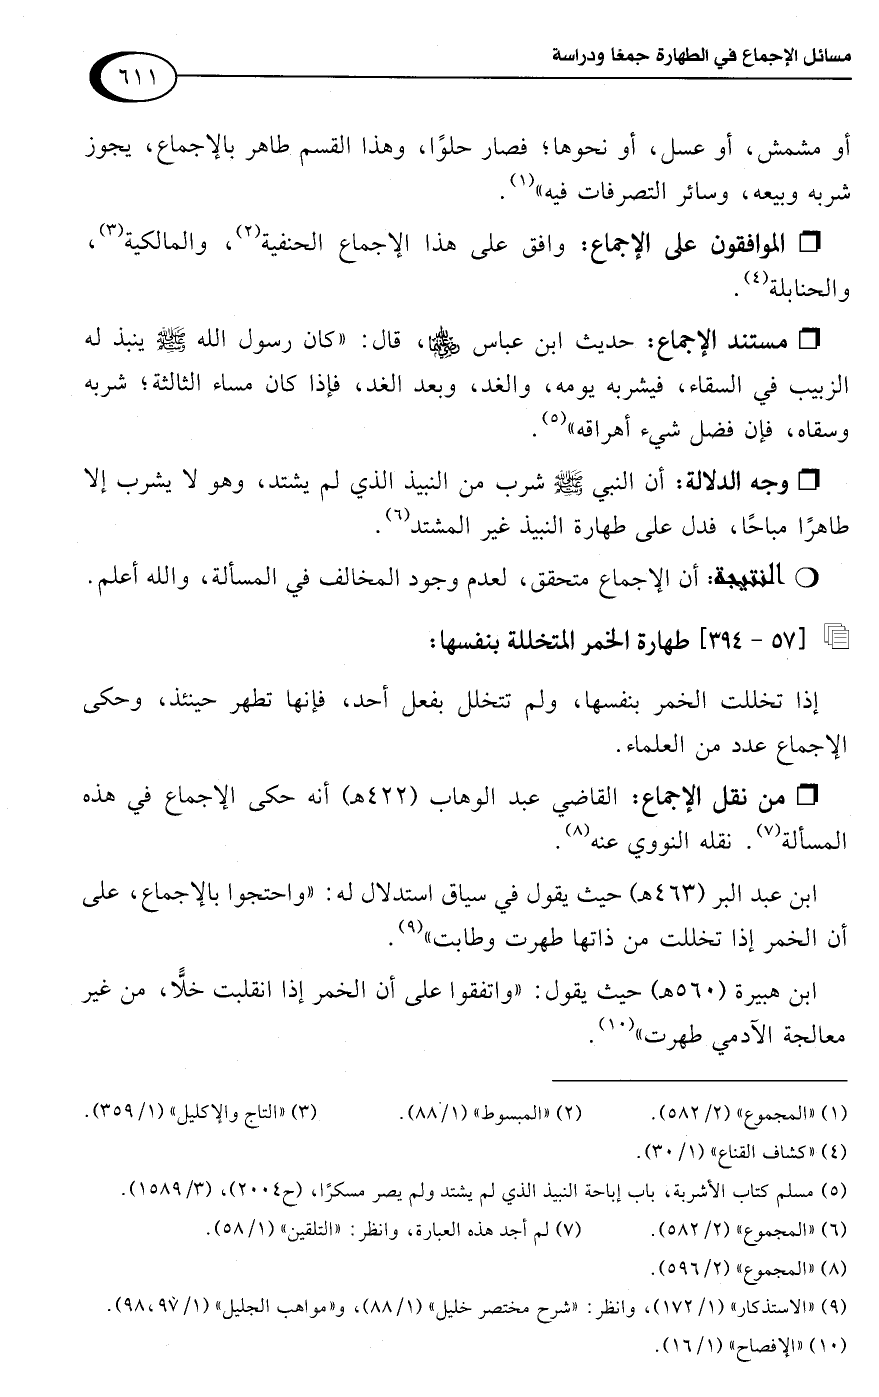 مسائل الإجماع في الطهارة جمعًا ودراسة
٦١١
أو مشمش، أو عسل، أو نحوها؛ فصار حلوًا، وهذا القسم طاهر بالإجماع، يجوز
شربه وبيعه، وسائر التصرفات فيه»(١).
❒ الموافقون على الإجماع: وافق على هذا الإجماع الحنفية(٢)، والمالكية(٣)،
والحنابلة(٤).
❒ مستند الإجماع: حديث ابن عباس رضي الله عنهما، قال: «كان رسول الله ﷺ ينبذ له
الزبيب في السقاء، فيشربه يومه، والغد، وبعد الغد، فإذا كان مساء الثالثة؛ شربه
وسقاه، فإن فضل شيء أهراقه»(٥).
❒ وجه الدلالة: أن النبي ﷺ شرب من النبيذ الذي لم يشتد، وهو لا يشرب إلا
طاهرًا مباحًا، فدل على طهارة النبيذ غير المشتد(٦).
❍ النتيجة: أن الإجماع متحقق، لعدم وجود المخالف في المسألة، والله أعلم.
[٥٧ - ٣٩٤] طهارة الخمر المتخللة بنفسها:
إذا تخللت الخمر بنفسها، ولم تتخلل بفعل أحد، فإنها تطهر حينئذ، وحكى
الإجماع عدد من العلماء.
❒ من نقل الإجماع: القاضي عبد الوهاب (٤٢٢هـ) أنه حكى الإجماع في هذه
المسألة(٧). نقله النووي عنه(٨).
ابن عبد البر (٤٦٣هـ) حيث يقول في سياق استدلال له: «واحتجوا بالإجماع، على
أن الخمر إذا تخللت من ذاتها طهرت وطابت»(٩).
ابن هبيرة (٥٦٠هـ) حيث يقول: «واتفقوا على أن الخمر إذا انقلبت خلًّا، من غير
معالجة الآدمي طهرت»(١٠).
(١) «المجموع» (٢/ ٥٨٢). (٢) «المبسوط» (١/ ٨٨). (٣) «التاج والإكليل» (١/ ٣٥٩).
(٤) «كشاف القناع» (١/ ٣٠).
(٥) مسلم كتاب الأشربة، باب إباحة النبيذ الذي لم يشتد ولم يصر مسكرًا، (ح٢٠٠٤)، (٣/ ١٥٨٩).
(٦) «المجموع» (٢/ ٥٨٢). (٧) لم أجد هذه العبارة، وانظر: «التلقين» (١/ ٥٨).
(٨) «المجموع» (٢/ ٥٩٦).
(٩) «الاستذكار» (١/ ١٧٢)، وانظر: «شرح مختصر خليل» (١/ ٨٨)، و«مواهب الجليل» (١/ ٩٧، ٩٨).
(١٠) «الإفصاح» (١/ ١٦).